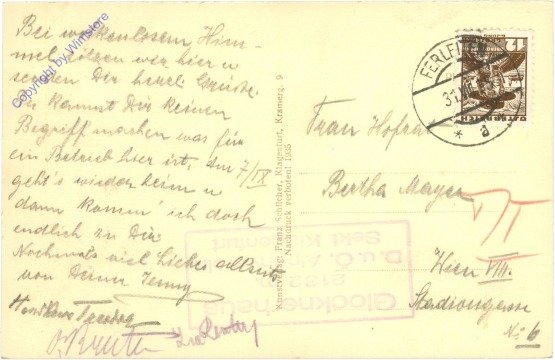 Bei wolkenlosem Him-
mel sitzen wir hier u
senden Dir herzl. Grüße.
Du kannst Dir keinen
Begriff machen was für
ein Betrieb hier ist. Am 7/IX
geht's wieder heim u
dann komm' ich doch
endlich zu Dir.
Nochmals viel Liebes
von Deiner Jenny
Copyright by Winstore
Kunstverlag: Franz Schilcher, Klagenfurt, Kramerg. 9
Nachdruck verboten! 1935
FERLEI
31.VIII
* a
12
ÖSTERREICH
Frau Hofrat
Bertha Mayer
Wien VIII.
Stadiongasse
No 6
Glocknerhaus
2132 m
D. u. Ö. A.
Sekt. Klagenfurt